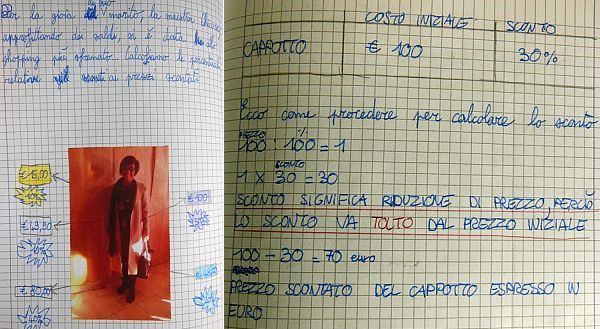 Per la gioia del marito, la maestra Chiara,
approfittando dei saldi, si è data allo
shopping più sfrenato... Calcoliamo le percentuali
relative ai prezzi scontati.
€ 15,00
10%
€ 49,90
€ 80,00
40%
€ 100
COSTO INIZIALE
SCONTO
CAPPOTTO
€ 100
30%
Ecco come procedere per calcolare lo sconto
PREZZO %
100 : 100 = 1
SCONTO
1 X 30 = 30
SCONTO SIGNIFICA RIDUZIONE DI PREZZO, PERCIÒ
LO SCONTO VA TOLTO DAL PREZZO INIZIALE
100 - 30 = 70 euro
PREZZO SCONTATO DEL CAPPOTTO ESPRESSO IN
EURO